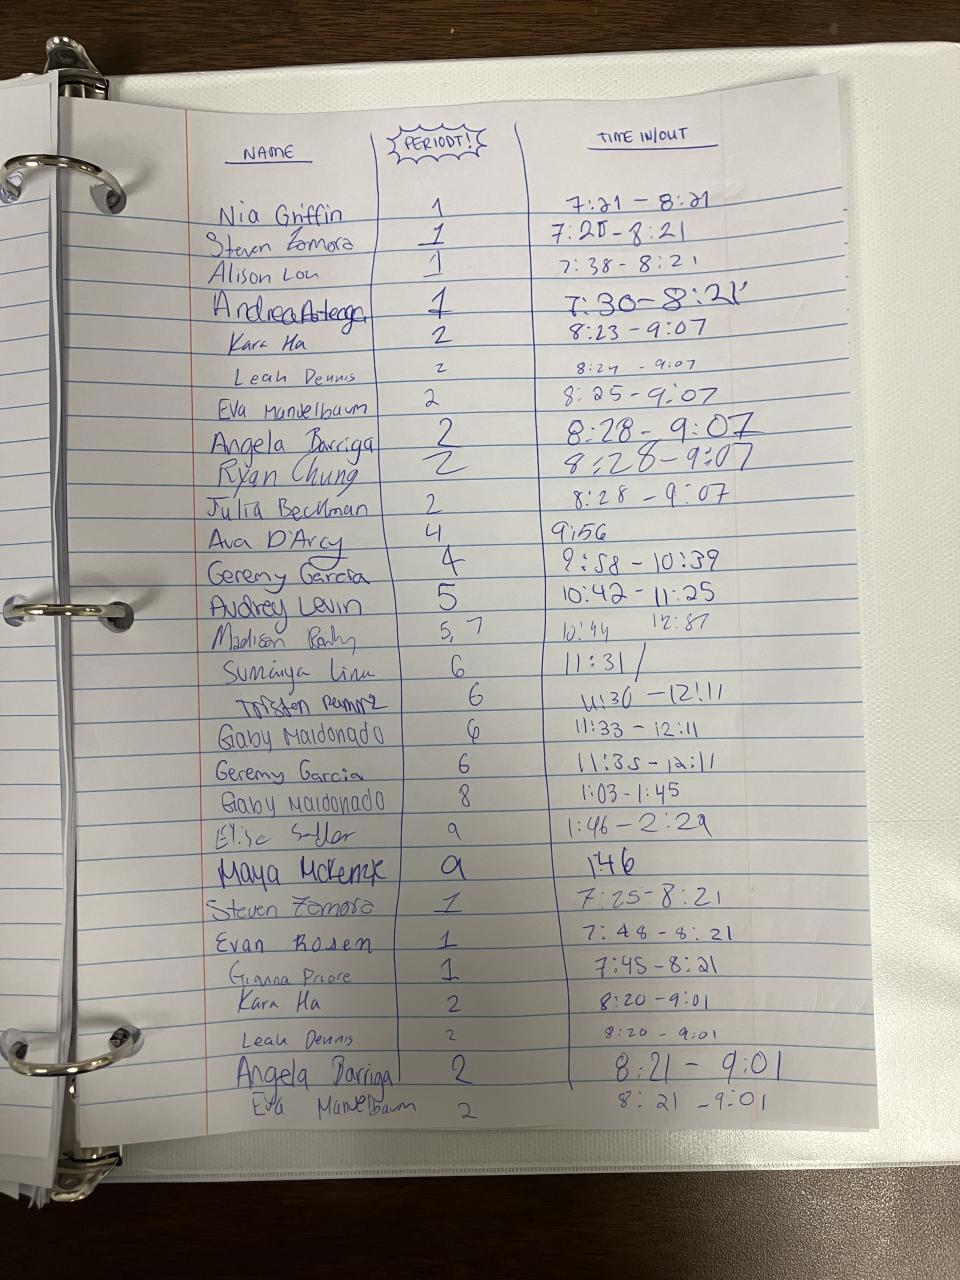 NAME PERIODT! TIME IN/OUT
Nia Griffin 1 7:21 - 8:21
Steven Zamora 1 7:20 - 8:21
Alison Lou 1 7:38 - 8:21
Andrea Arteaga 1 7:30 - 8:21
Kara Ha 2 8:23 - 9:07
Leah Dennis 2 8:24 - 9:07
Eva Mandelbaum 2 8:25 - 9:07
Angela Barriga 2 8:28 - 9:07
Ryan Chung 2 8:28 - 9:07
Julia Beckman 2 8:28 - 9:07
Ava D'Arcy 4 9:56
Geremy Garcia 4 9:58 - 10:39
Audrey Levin 5 10:42 - 11:25
Madison 5, 7 10:44 12:87
Sumaiya 6 11:31 /
Tristen 6 11:30 - 12:11
Gaby Maldonado 6 11:33 - 12:11
Geremy Garcia 6 11:35 - 12:11
Gaby Maldonado 8 1:03 - 1:45
Elise 9 1:46 - 2:29
Maya McKenzie 9 1:46
Steven Zamora 1 7:25 - 8:21
Evan Rosen 1 7:48 - 8:21
Gianna Priore 1 7:45 - 8:21
Kara Ha 2 8:20 - 9:01
Leah Dennis 2 8:20 - 9:01
Angela Barriga 2 8:21 - 9:01
Eva Mandelbaum 2 8:21 - 9:01